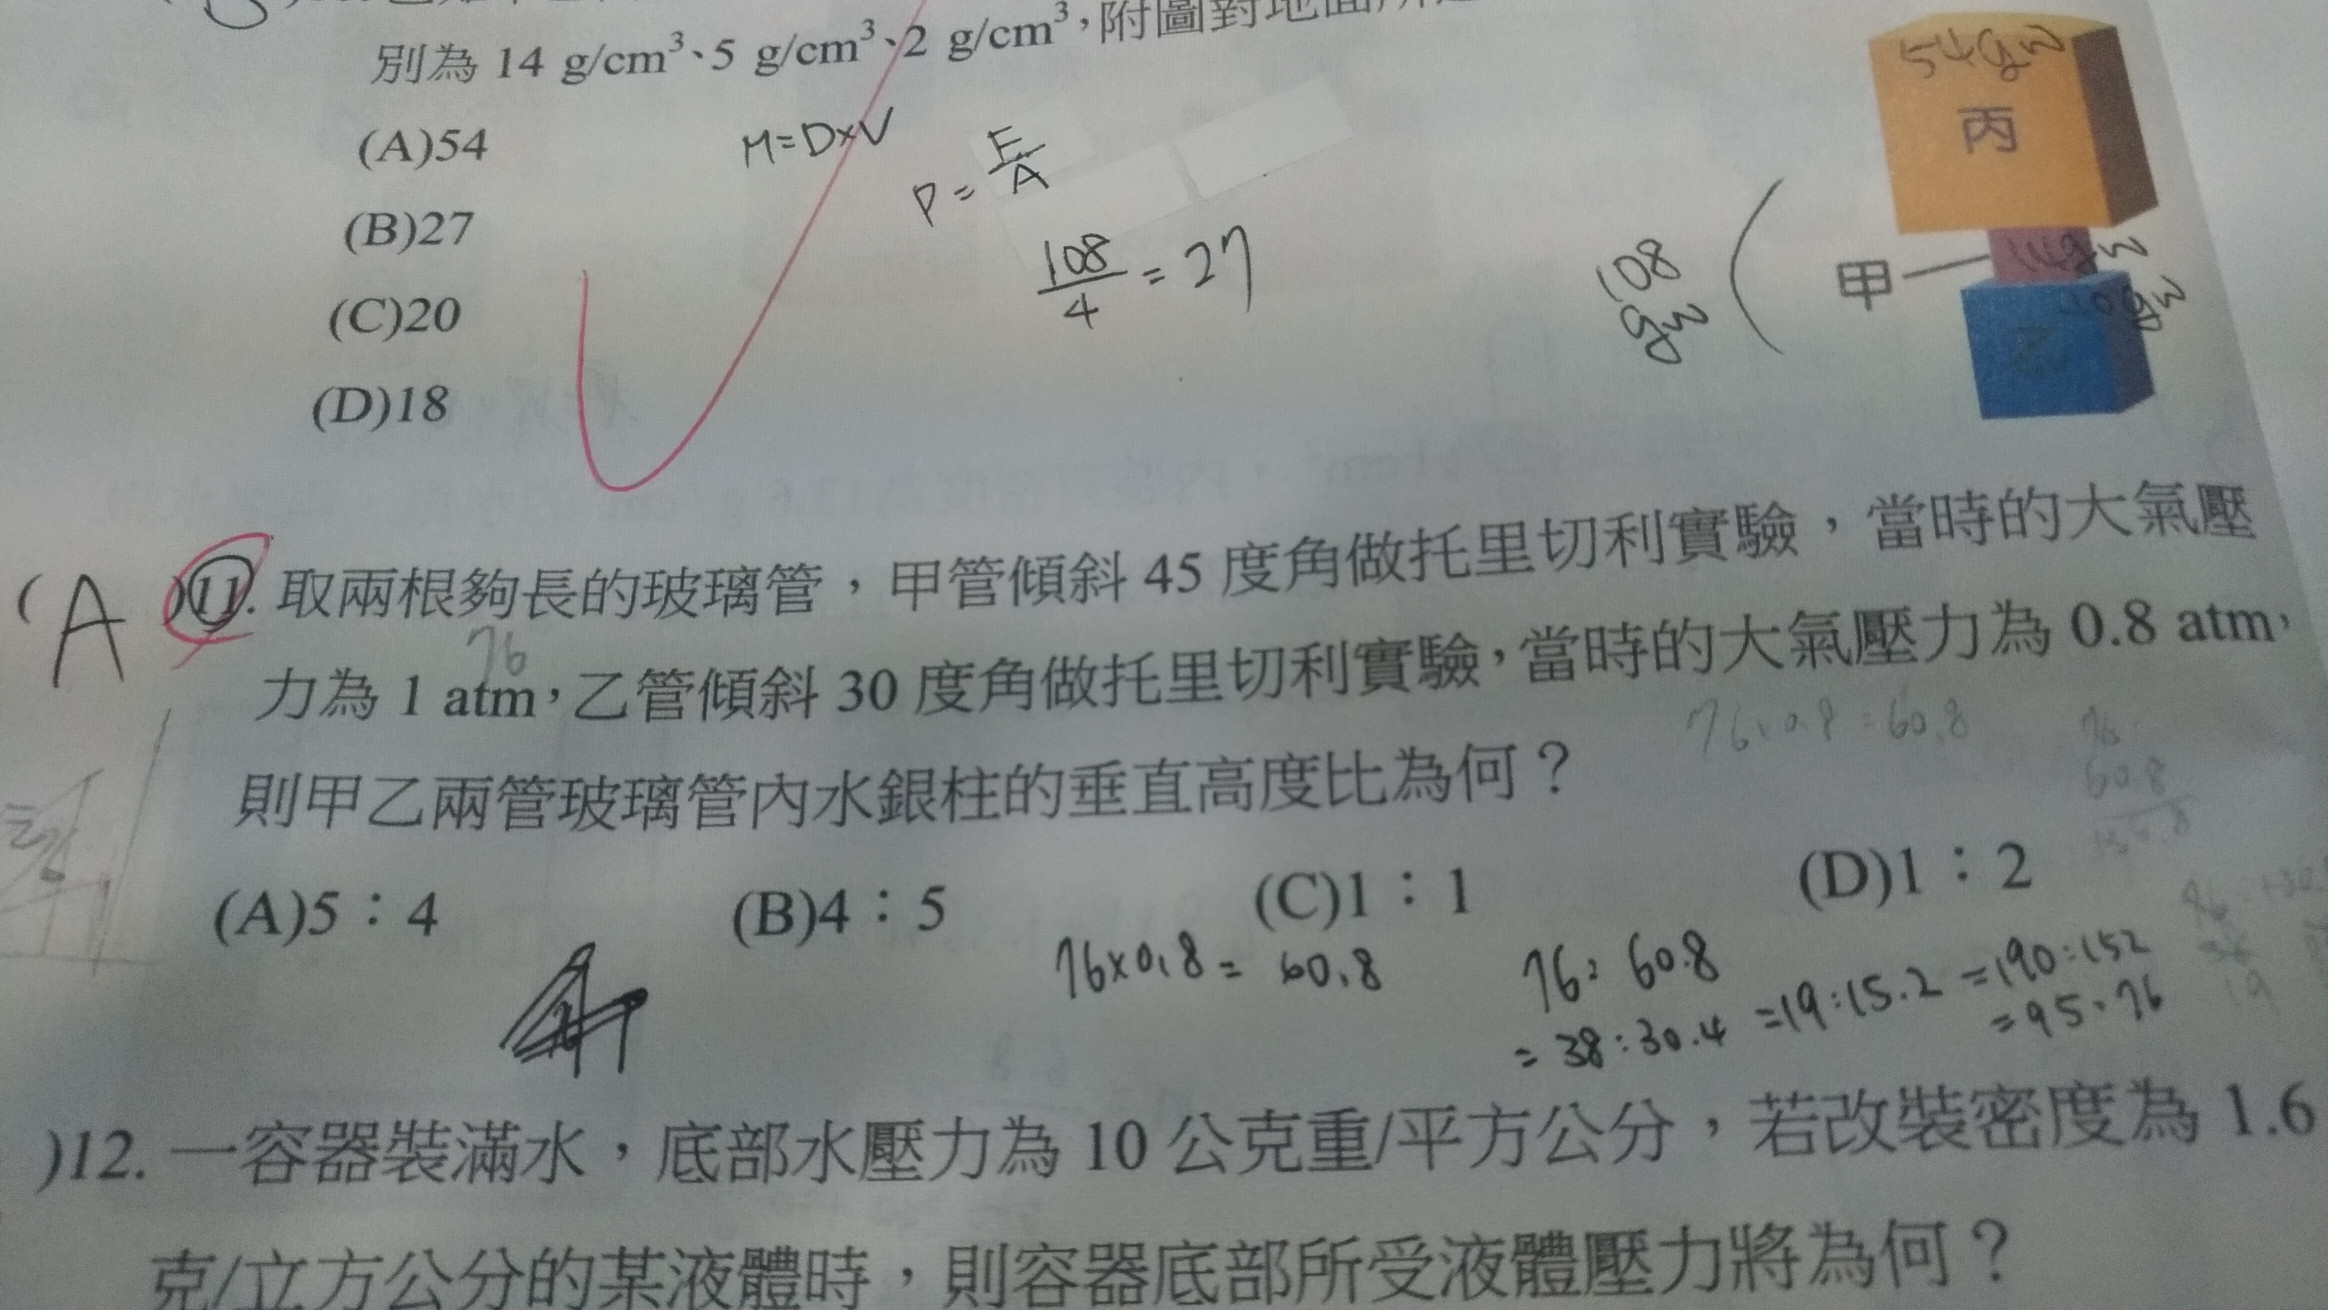 別為 14 g/cm³、5 g/cm³、2 g/cm³，附圖對地面所
(A)54
(B)27
(C)20
(D)18
M=D×V
P=F/A
108/4=27
54gw
丙
甲
108
gw
(A)11. 取兩根夠長的玻璃管，甲管傾斜 45 度角做托里切利實驗，當時的大氣壓
76
力為 1 atm，乙管傾斜 30 度角做托里切利實驗，當時的大氣壓力為 0.8 atm，
76×0.8=60.8
則甲乙兩管玻璃管內水銀柱的垂直高度比為何？
(A)5：4 (B)4：5 (C)1：1 (D)1：2
76×0.8=60.8
76:60.8
=38:30.4=19:15.2=190:152
=95:76
)12. 一容器裝滿水，底部水壓力為 10 公克重/平方公分，若改裝密度為 1.6
克/立方公分的某液體時，則容器底部所受液體壓力將為何？